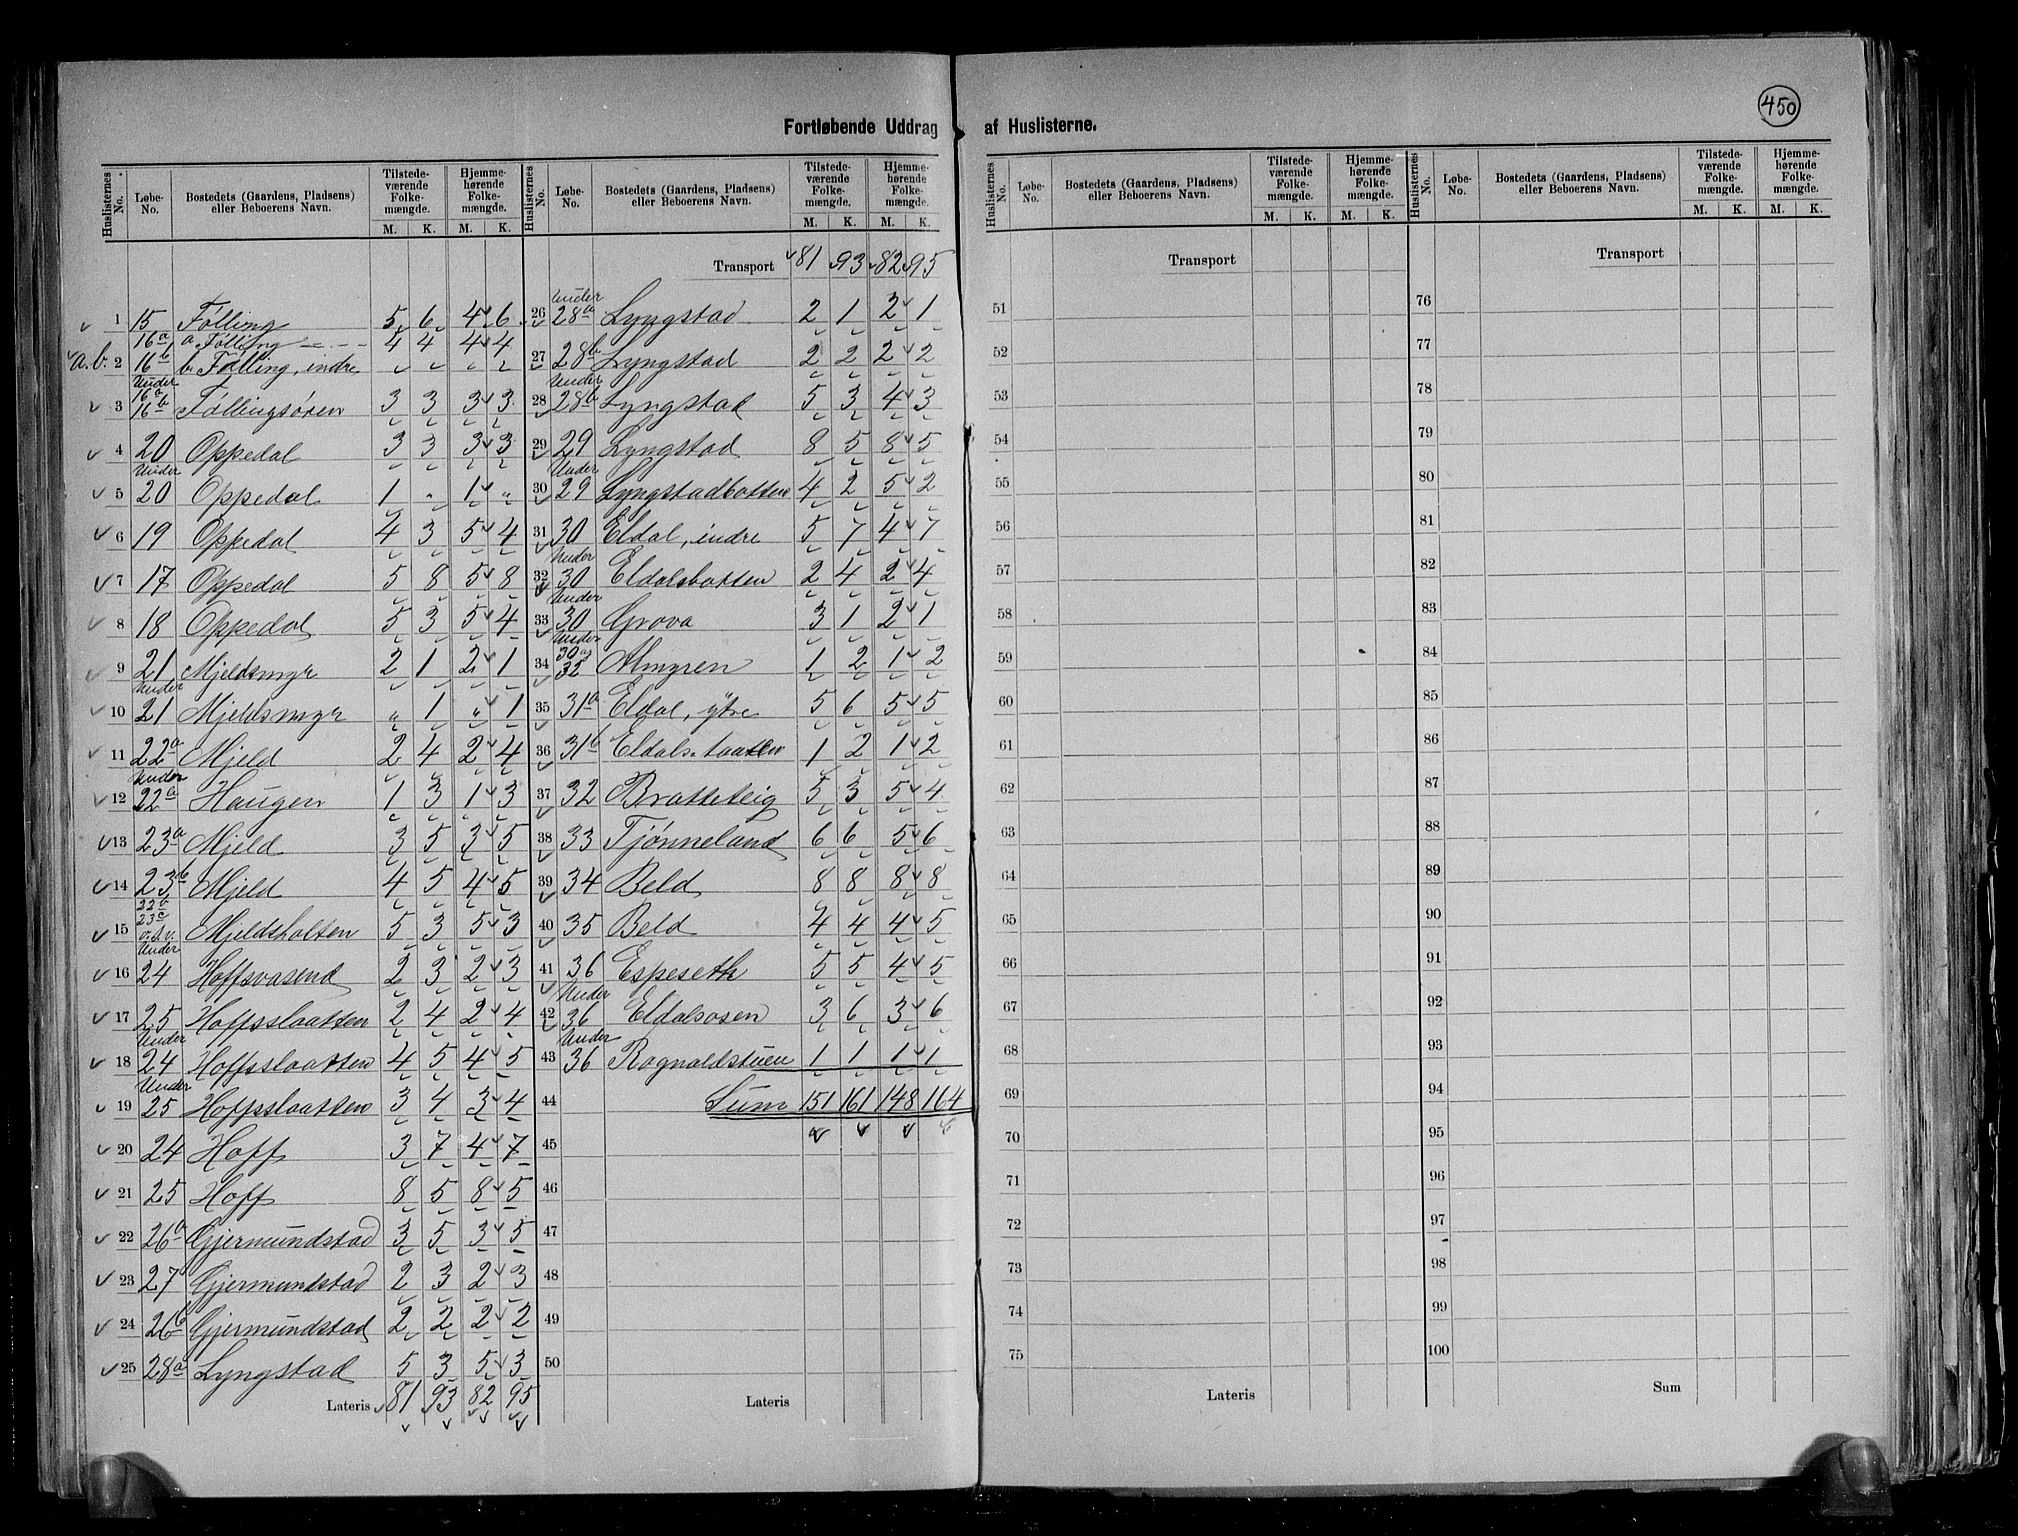 450
Fortløbende Uddrag af Huslisterne.
Huslisternes No. Løbe-No. Bostedets (Gaardens, Pladsens) eller Beboerens Navn. Tilstedeværende Folkemængde. M. K. Hjemmehørende Folkemængde. M. K.
1 15 Følling 5 6 4 6
16a a. Følling 4 4 4 4
a.b. 2 16b b. Følling, indre
3 Under 16a 16b Føllingsøren 3 3 3 3
4 20 Oppedal 3 3 3 3
5 Under 20 Oppedal 1 „ 1 „
6 19 Oppedal 4 3 5 4
7 17 Oppedal 5 8 5 8
8 18 Oppedal 5 3 5 4
9 21 Mjeldsmyr 2 1 2 1
10 Under 21 Mjeldsmyr „ 1 „ 1
11 22a Mjeld 2 4 2 4
12 Under 22a Haugen 1 3 1 3
13 23a Mjeld 3 5 3 5
14 23b Mjeld 4 5 4 5
15 22b 23c o.s.v. Mjeldsholten 5 3 5 3
16 Under 24 Hoffsvasend 2 3 2 3
17 25 Hoffsslaatten 2 4 2 4
18 Under 24 Hoffsslaatten 4 5 4 5
19 Under 25 Hoffsslaatten 3 4 3 4
20 24 Hoff 3 7 4 7
21 25 Hoff 8 5 8 5
22 26a Gjermundstad 3 5 3 5
23 27 Gjermundstad 2 3 2 3
24 26b Gjermundstad 2 2 2 2
25 28a Lyngstad 5 3 5 3
Lateris 81 93 82 95
Huslisternes No. Løbe-No. Bostedets (Gaardens, Pladsens) eller Beboerens Navn. Tilstedeværende Folkemængde. M. K. Hjemmehørende Folkemængde. M. K.
Transport 81 93 82 95
26 Under 28a Lyngstad 2 1 2 1
27 28b Lyngstad 2 2 2 2
28 Under 28b Lyngstad 5 3 4 3
29 29 Lyngstad 8 5 8 5
30 Under 29 Lyngstadbotten 4 2 5 2
31 30 Eldal, indre 5 7 4 7
32 Under 30 Eldalsbotten 2 4 2 4
33 Under 30 Grova 3 1 2 1
34 Under 30 og 32 Almyren 1 2 1 2
35 31a Eldal, ytre 5 6 5 5
36 31b Eldalsslaatten 1 2 1 2
37 32 Bratteteig 5 3 5 4
38 33 Tjønneland 6 6 5 6
39 34 Beld 8 8 8 8
40 35 Beld 4 4 4 5
41 36 Espeseth 5 5 4 5
42 Under 36 Eldalsosen 3 6 3 6
43 Under 36 Ragnaldstuen 1 1 1 1
44 Sum 151 161 148 164
45
46
47
48
49
50
Lateris
Huslisternes No. Løbe-No. Bostedets (Gaardens, Pladsens) eller Beboerens Navn. Tilstedeværende Folkemængde. M. K. Hjemmehørende Folkemængde. M. K.
Transport
51
52
53
54
55
56
57
58
59
60
61
62
63
64
65
66
67
68
69
70
71
72
73
74
75
Lateris
Huslisternes No. Løbe-No. Bostedets (Gaardens, Pladsens) eller Beboerens Navn. Tilstedeværende Folkemængde. M. K. Hjemmehørende Folkemængde. M. K.
Transport
76
77
78
79
80
81
82
83
84
85
86
87
88
89
90
91
92
93
94
95
96
97
98
99
100
Sum